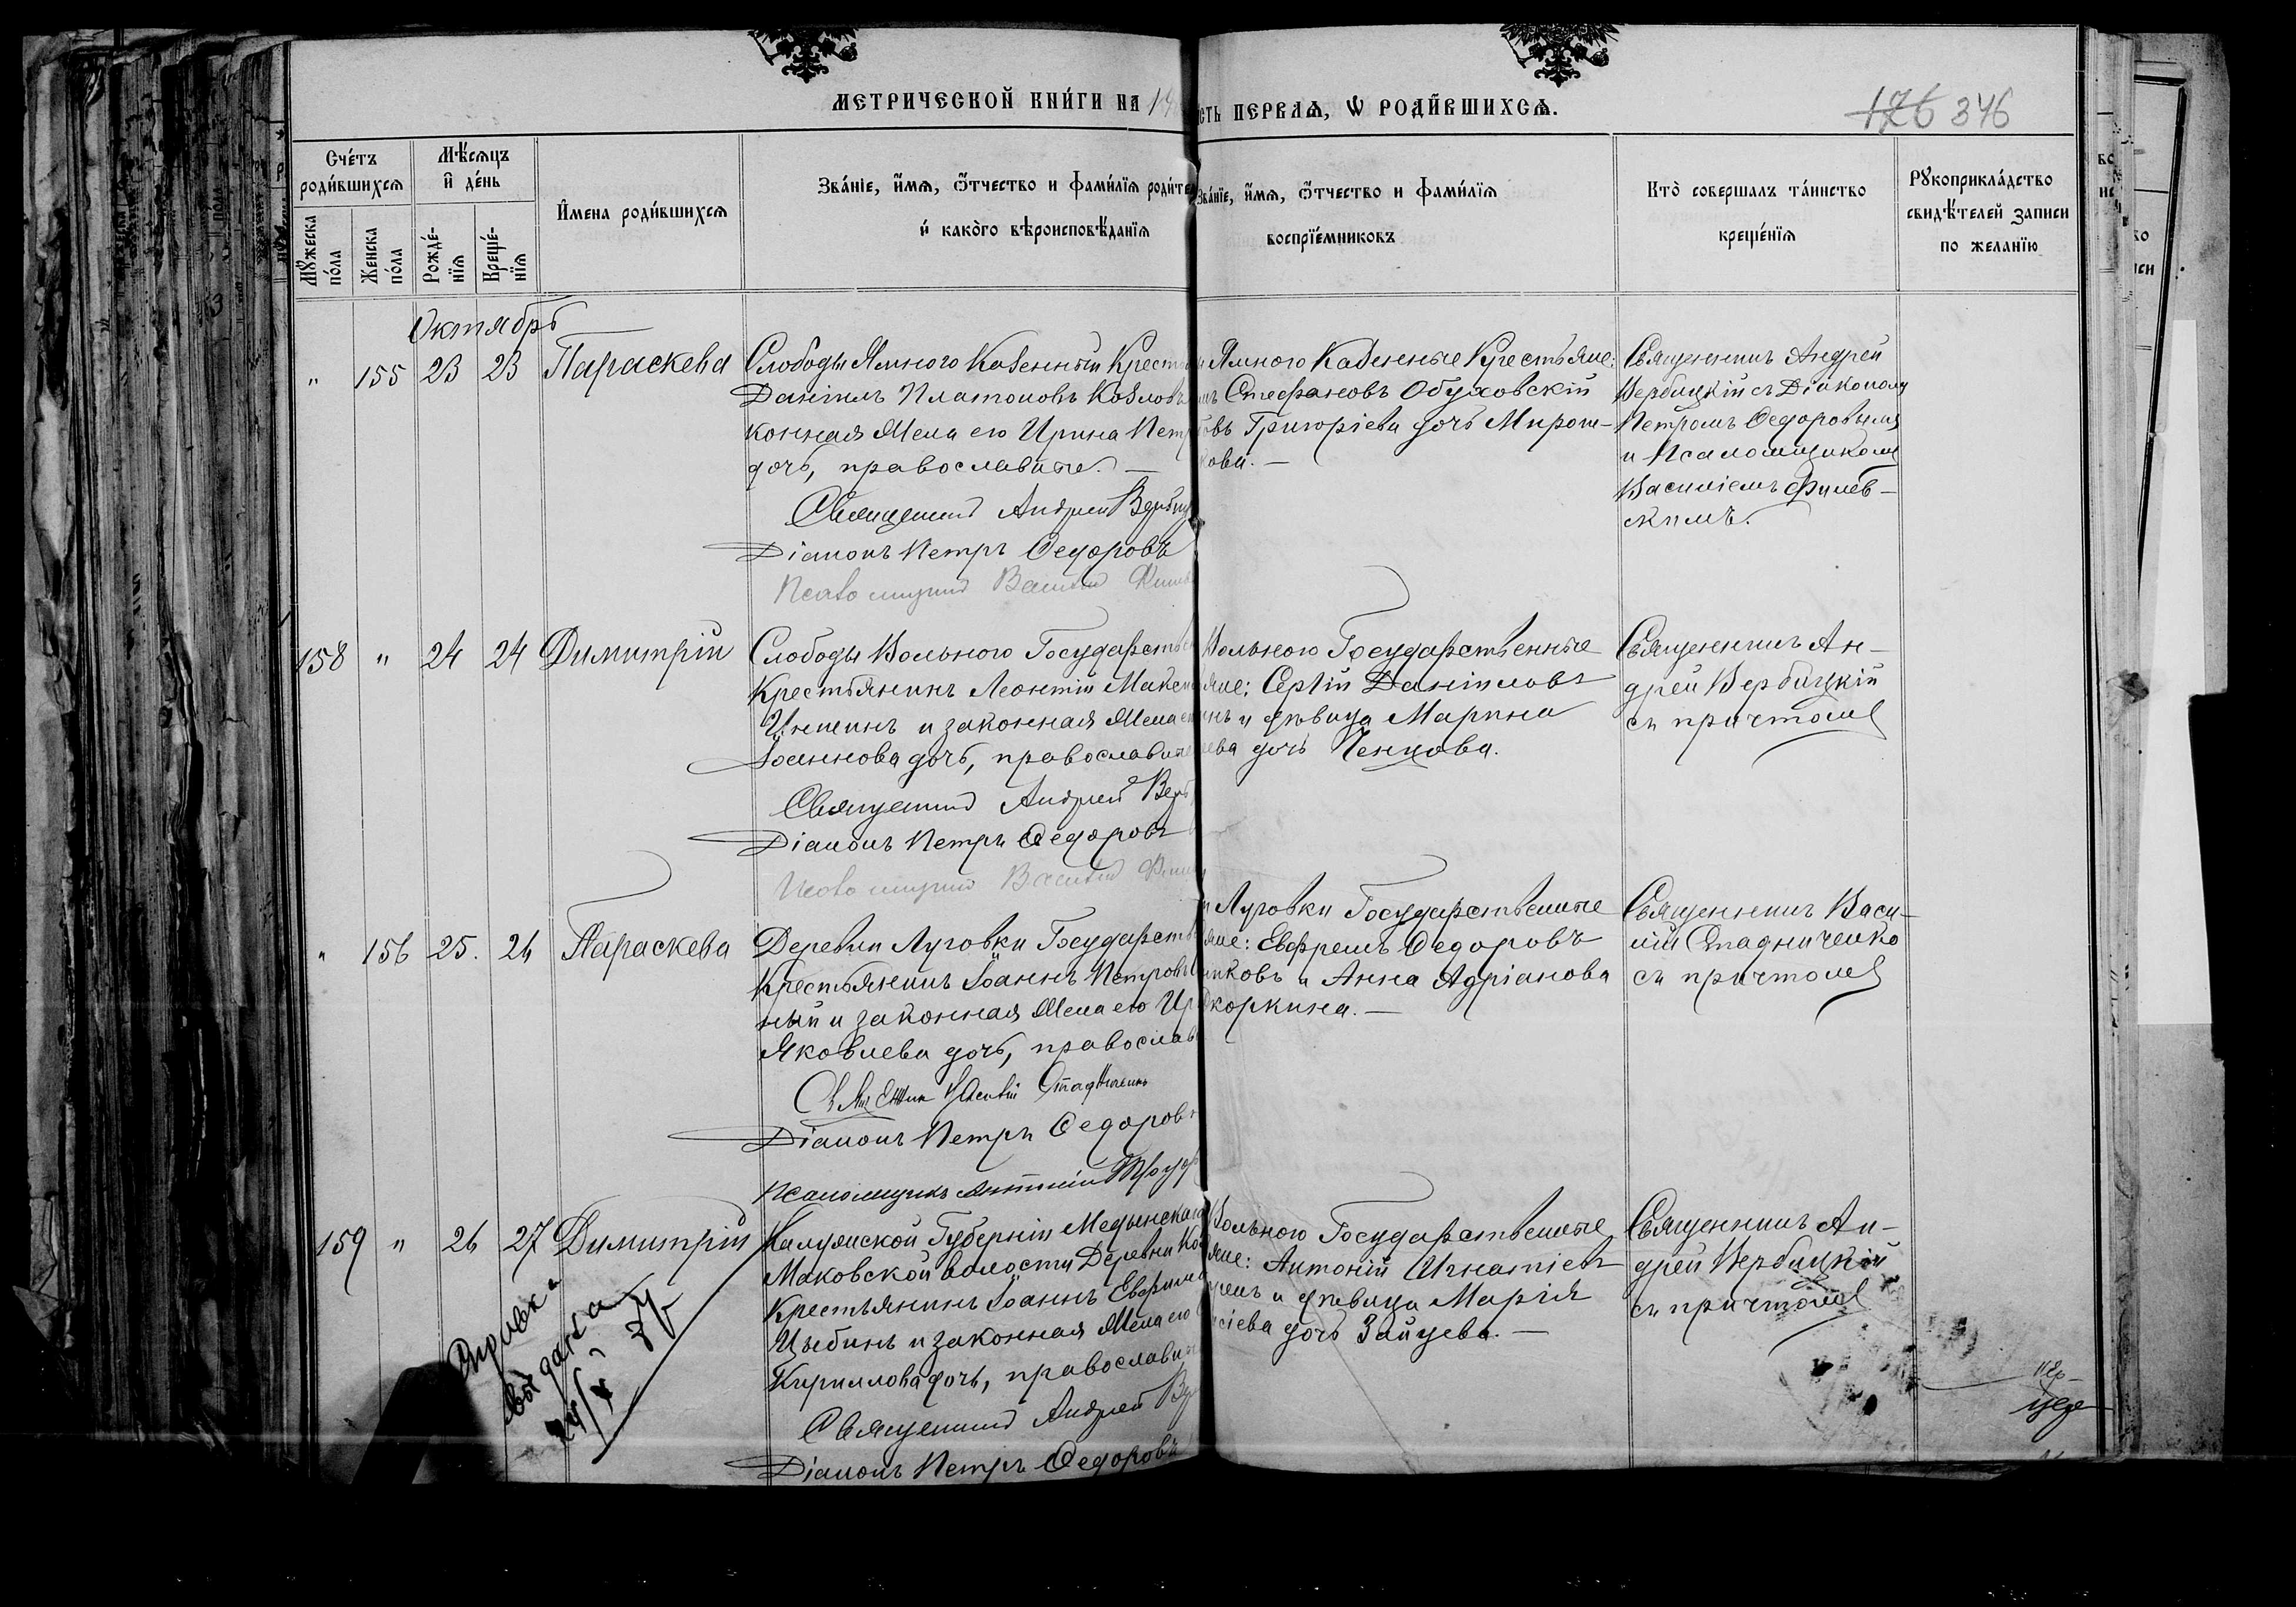 МЕТРИЧЕСКОЙ КНИ́ГИ НА 19
СТЬ ПЕРВАѦ, Ѡ РОДИ́ВШИХСѦ.
176 346
Сче́тъ роди́вшихсѧ
Мѣ́сѧцъ и де́нь
Мꙋ́жеска по́ла
Же́нска по́ла
Рожде́-нїѧ
Креще́-нїѧ
И́мена роди́вшихсѧ
Зва́нїе, и́мѧ, ѻ́тчество и фами́лїѧ роди́те
и како́гѡ вѣроисповѣ́данїѧ
Зва́нїе, и́мѧ, ѻ́тчество и фами́лїѧ
воспрїе́мниковъ
Кто̀ соверша́лъ та́инство
креще́нїѧ
Рꙋкоприкла́дство
свидѣ́телей записи
по жела́нїю
Октябрь
" 155 23 23 Параскева
Слободы Ямного Казенный Кресть
Даніилъ Платоновъ Козловъ
конная Жена его Ирина Петр
дочь, православные. —
Священникъ Андрей Вербиц
Діаконъ Петръ Ѳедоровъ
Псаломщикъ Василій Филев
Ямного Казенные Крестьяне:
Стефановъ Обуховскій
овъ Григоріева дочь Мирош-
кова. —
Священникъ Андрей
Вербицкій съ Діакономъ
Петромъ Ѳедоровымъ
и Псаломщикомъ
Василіемъ Филев-
скимъ.
158 " 24 24 Димитрій
Слободы Вольного Государств
Крестьянинъ Леонтій Макси
и законная Жена его
Іоаннова дочь, православные
Священникъ Андрей Верб
Діаконъ Петръ Ѳедоровъ
Псаломщикъ Василій Филев
Вольного Государственные
яне: Сергій Даніиловъ
инъ и дѣвица Марина
ева дочь Пенкова.
Священникъ Ан-
дрей Вербицкій
съ причтомъ
" 156 25. 26 Параскева
Деревни Луговки Государств
Крестьянинъ Іоаннъ Петровъ
ный и законная Жена его Ир
Яковлева дочь, православ
Священникъ Василій Стадниченко
Діаконъ Петръ Ѳедоровъ
Псаломщикъ Антоній
Луговки Государственные
яне: Евфремъ Ѳедоровъ
никовъ и Анна Адріанова
коркина. —
Священникъ Васи-
лій Стадниченко
съ причтомъ
159 " 26 27 Димитрій
Калужской Губерніи Медынскаго
Маковской волости Деревни Ко
Крестьянинъ Іоаннъ Евфим
Цыбинъ и законная Жена его
Кириллова дочь, православны
Священникъ Андрей Ве
Діаконъ Петръ Ѳедоровъ
Вольного Государственные
яне: Антоній Игнатіев
и дѣвица Марія
сіева дочь Зайцева. —
Священникъ Ан-
дрей Вербицкій
съ причтомъ
Справка
выдана